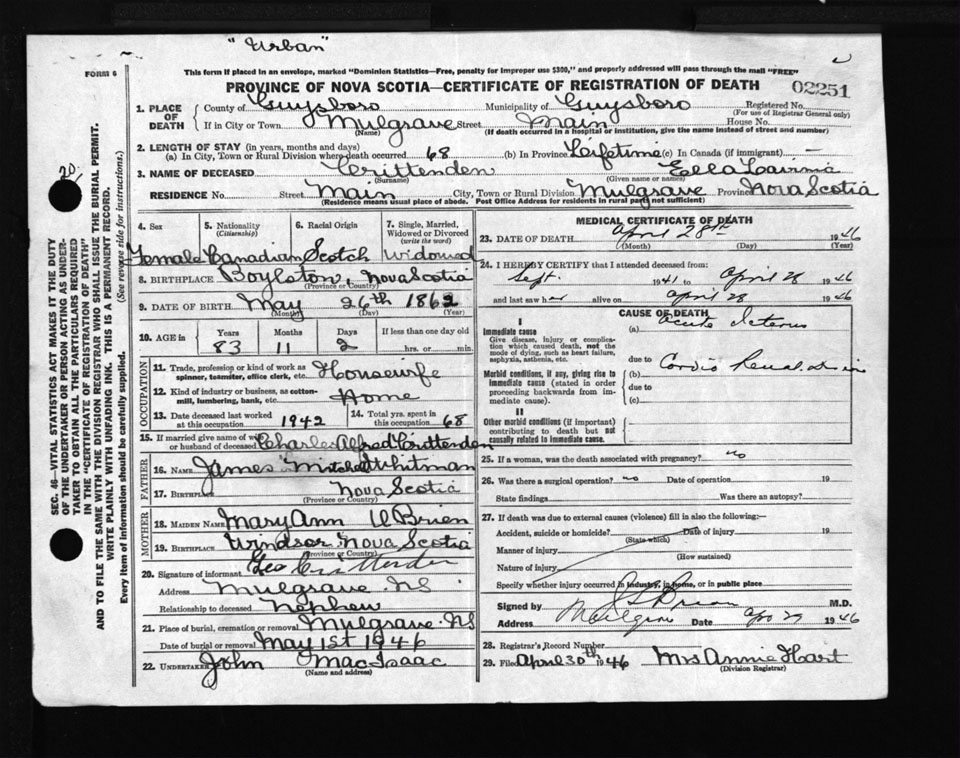 "Urban"
FORM 6
This form if placed in an envelope, marked "Dominion Statistics—Free, penalty for improper use $300," and properly addressed will pass through the mail "FREE"
PROVINCE OF NOVA SCOTIA—CERTIFICATE OF REGISTRATION OF DEATH 02251
1. PLACE OF DEATH County of Guysboro Municipality of Guysboro Registered No.
(For use of Registrar General only)
If in City or Town Mulgrave Street Main House No.
(Name) (If death occurred in a hospital or institution, give the name instead of street and number)
2. LENGTH OF STAY (in years, months and days)
(a) In City, Town or Rural Division where death occurred 68 (b) In Province Lifetime (c) In Canada (if immigrant) —
3. NAME OF DECEASED Crittenden Ella Lavinia
(Surname) (Given name or names)
RESIDENCE No. Street Main City, Town or Rural Division Mulgrave Province Nova Scotia
(Residence means usual place of abode. Post Office Address for residents in rural parts not sufficient)
20.
SEC. 46—VITAL STATISTICS ACT MAKES IT THE DUTY
OF THE UNDERTAKER OR PERSON ACTING AS UNDER-
TAKER TO OBTAIN ALL THE PARTICULARS REQUIRED
IN THE "CERTIFICATE OF REGISTRATION OF DEATH"
AND TO FILE THE SAME WITH THE DIVISION REGISTRAR WHO SHALL ISSUE THE BURIAL PERMIT.
WRITE PLAINLY WITH UNFADING INK. THIS IS A PERMANENT RECORD.
Every item of information should be carefully supplied. (See reverse side for instructions.)
4. Sex 5. Nationality (Citizenship) 6. Racial Origin 7. Single, Married, Widowed or Divorced (write the word)
Female Canadian Scotch Widowed
8. BIRTHPLACE Boylston, Nova Scotia
(Province or Country)
9. DATE OF BIRTH May 26th 1862
(Month) (Day) (Year)
10. AGE in Years Months Days If less than one day old
83 11 2 hrs. or min.
OCCUPATION
11. Trade, profession or kind of work as spinner, teamster, office clerk, etc. Housewife
12. Kind of industry or business, as cotton-mill, lumbering, bank, etc. Home
13. Date deceased last worked at this occupation 1942 14. Total yrs. spent in this occupation 68
15. If married give name of wife or husband of deceased Charles Alfred Crittenden
FATHER
16. Name James Mitchell Whitman
17. Birthplace Nova Scotia
(Province or Country)
MOTHER
18. Maiden Name Mary Ann O'Brien
19. Birthplace Windsor Nova Scotia
(Province or Country)
20. Signature of informant Geo Crittenden
Address Mulgrave NS
Relationship to deceased Nephew
21. Place of burial, cremation or removal Mulgrave NS
Date of burial or removal May 1st 1946
22. UNDERTAKER John MacIsaac
(Name and address)
MEDICAL CERTIFICATE OF DEATH
23. DATE OF DEATH April 28th 1946
(Month) (Day) (Year)
24. I HEREBY CERTIFY that I attended deceased from:
Sept. 1941 to April 28 1946
and last saw her alive on April 28 1946
CAUSE OF DEATH
I
Immediate cause (a) Acute Icterus
Give disease, injury or complication which caused death, not the mode of dying, such as heart failure, asphyxia, asthenia, etc.
due to
Morbid conditions, if any, giving rise to immediate cause (stated in order proceeding backwards from immediate cause). (b) Cardio Renal
due to
(c)
II
Other morbid conditions (if important) contributing to death but not causally related to immediate cause.
25. If a woman, was the death associated with pregnancy? no
26. Was there a surgical operation? no Date of operation 19
State findings Was there an autopsy?
27. If death was due to external causes (violence) fill in also the following:—
Accident, suicide or homicide? Date of injury 19
(State which)
Manner of injury
(How sustained)
Nature of injury
Specify whether injury occurred in industry, in home, or in public place
Signed by M.D.
Address Mulgrave Date Apr 29 1946
28. Registrar's Record Number
29. Filed April 30th 1946 Mrs Annie Hart
(Division Registrar)